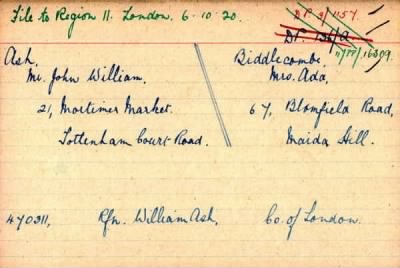 File to Region 11. London. 6.10.20.
DP. 2/1157.
DP. 136/2
11/PP/16309
Ash,
Mr. John William,
21, Mortimer Market.
Tottenham Court Road.
Biddlecombe,
Mrs. Ada,
67, Blomfield Road,
Maida Hill.
470311, Rfn. William Ash, Co. of London.